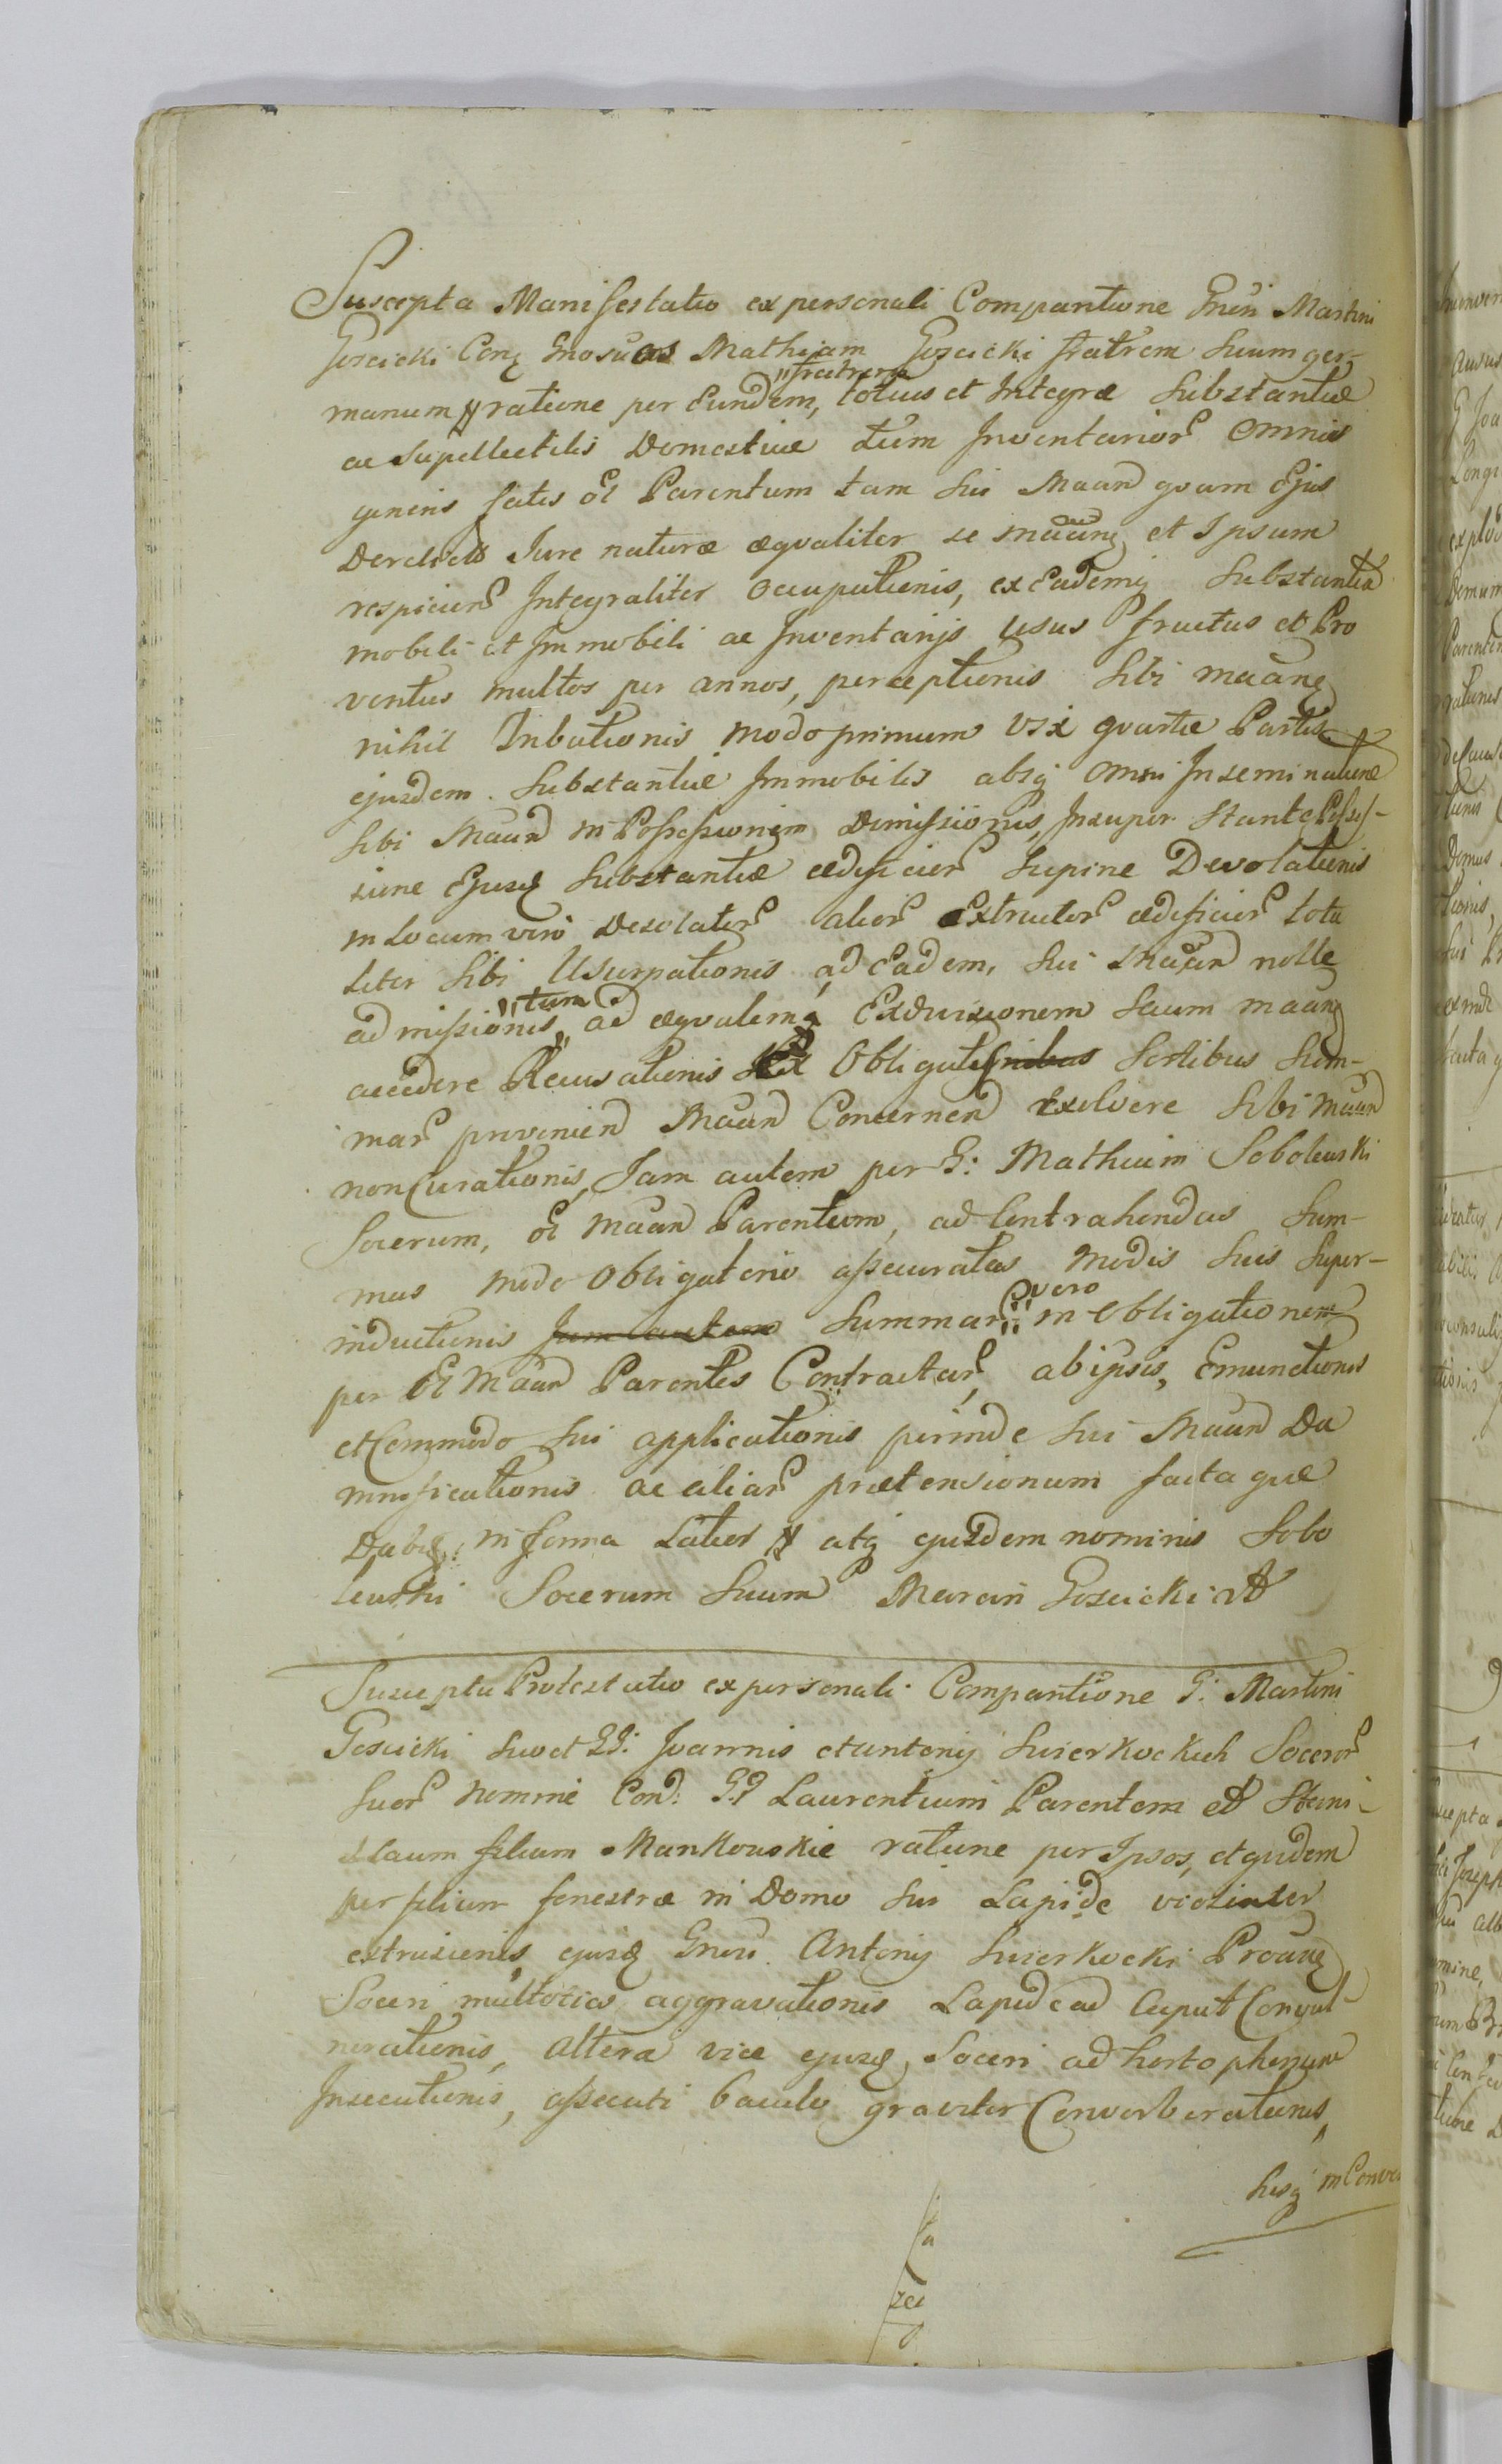 Suscepta Manifestatio ex personali Comparitione Gnēri Martini
Goscicki Conq Gnosum Mathiam Goscicki fratrem Suum ger-
manum ratione per Eundem, "fratrem totius et Integræ Substantiæ
ac Supellectilis Domesticæ tum Inventarior Omnis
generis satis ol Parentum tam Sui Maand quam Ejus
Derelicta Jure naturæ æqvaliter se maanq et Ipsum
respicien Integraliter Occupationis, ex Eademq Substantia
mobili et Immobili ac Inventarijs Usus fructus et Pro
ventus multos per annos, perceptionis Sibi maanq
nihil Tributionis modo primum vix qvartæ Partis
ejusdem Substantiæ Immobilis absq Omni Inseminatione
Sibi Maand in Possessionem Dimissionis, Insuper Stante Posses-
sione Ejusq Substantiæ ædificior Supine Desolationis
in Locum vero Desolator alior Extructor ædificior tota
liter Sibi Usurpationis, ad Eadem, Sui Maand nolle
admissionis, "tum ad æqvalemq Exdivisionem Secum maanq
accedere Recusationis Ex Obligatis Sortibus Sum-
mar provenien Maand Concernen Exolvere Sibi Maand
non Curationis, Jam autem per G: Mathiam Sobolewski
Socerum, ol Maand Parentum, ad Contrahendas Sum-
mas modo Obligatorio assecuratas Modis Suis Super-
inductionis Jam autem Summar vero in Obligationem
per ol Maand Parentes Contractar, ab ipsis, Emunctionis
et Commodo Sui applicationis perinde Sui Maand Da
mnificationis ac aliar prætensionum facta quæ
Dabq: in forma Latior atq ejusdem nominis Sobo
lewski Socerum Suum Marcin Goscicki
Suscepta Protestatio ex personali Comparitione G: Martini
Goscicki Suo et GG: Joannis et Antonij Swierkockich Soceror
Suor nomine Con: GG Laurentium Parentem et Stani-
slaum filium Mankowskie ratione per Ipsos, et quidem
per filium fenestræ in Domo Sui Lapide violenter
extrusionis, ejusq Gnēri Antonij Swierkocki Proanq
Soceri multoties aggravationis Lapide ad Caput Convul-
nerationis, altera vice ejusq Soceri ad horto
Insecutionis, assecuti baculo graviter Converberationis,
Susq in Conver